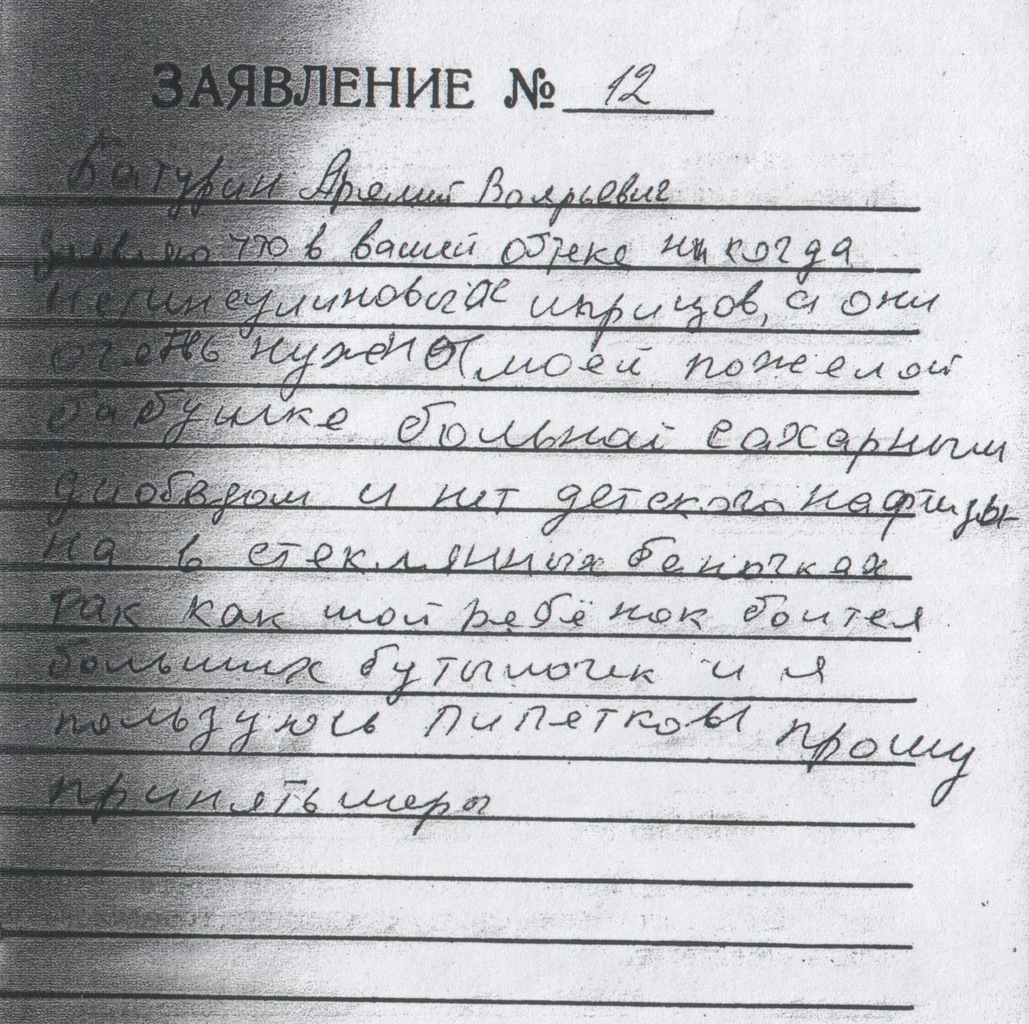 ЗАЯВЛЕНИЕ № 12
Батурин Аремий Воярьевич
Заевляю что в вашей обтеке никогда
нетинсулиновыйх шприцов, а они
очень нужены моей пожелой
бабушке больной сахарным
диобедом и нет детского нафтизы-
на в стеклянных баночках
так как мой ребёнок боится
больших бутылочек и я
пользуюсь пипетковы прошу
принять меры